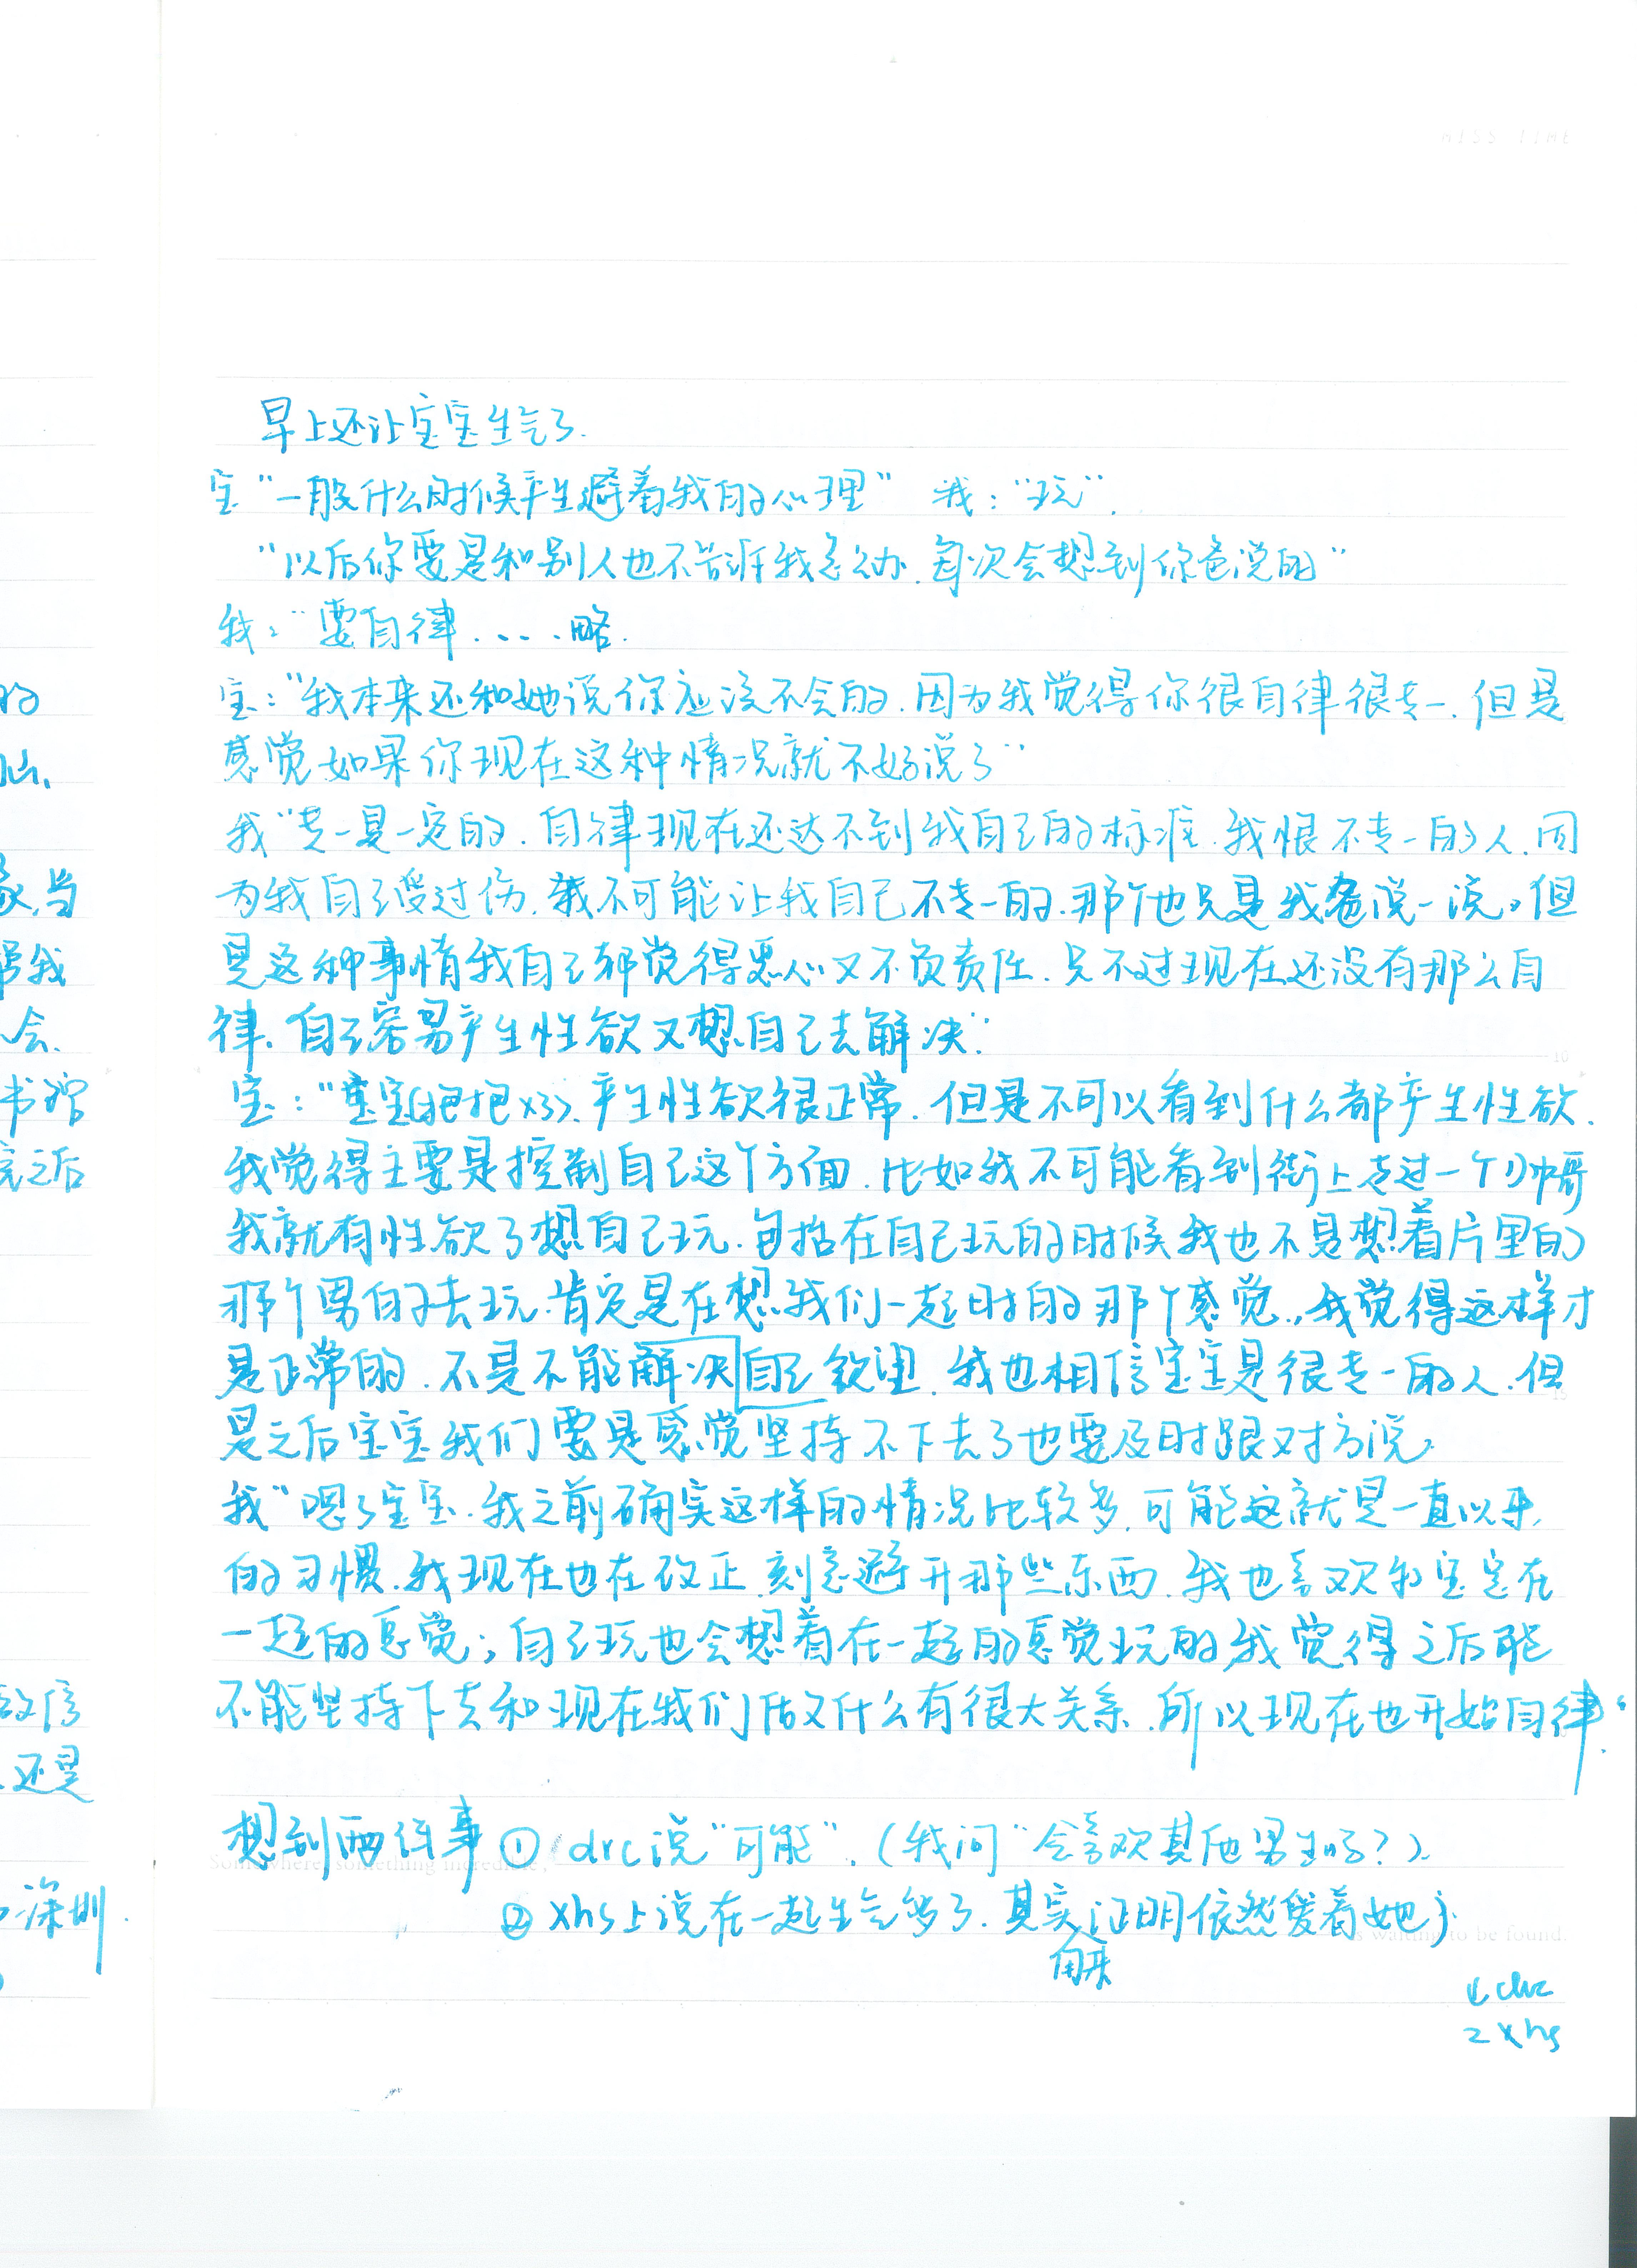 早上还让宝宝生气了.
宝"一般什么时候产生避着我的心理" 我："玩".
"以后你要是和别人也不告诉我怎么办.每次会想到你爸说的"
我："要自律....略.
宝："我本来还和她说你应该不会的.因为我觉得你很自律很专一.但是
感觉如果你现在这种情况就不好说了"
我"专一是一定的.自律现在还达不到我自己的标准.我恨不专一的人.因
为我自己受过伤.我不可能让我自己不专一的.那个也只是我爸说一说。但
是这种事情我自己都觉得恶心又不负责任.只不过现在还没有那么自
律.自己容易产生性欲又想自己去解决"
宝："宝宝(抱抱x3).产生性欲很正常.但是不可以看到什么都产生性欲.
我觉得主要是控制自己这个方面.比如我不可能看到街上走过一个小帅哥
我就有性欲了想自己玩.包括在自己玩的时候我也不是想着片里的
那个男的去玩.肯定是在想我们一起时的那个感觉.,我觉得这样才
是正常的.不是不能解决自己欲望.我也相信宝宝是很专一的人.但
是之后宝宝我们要是感觉坚持不下去了也要及时跟对方说.
我"嗯了宝宝.我之前确实这样的情况比较多.可能这就是一直以来
的习惯.我现在也在改正.刻意避开那些东西.我也喜欢和宝宝在
一起的感觉;自己玩也会想着在一起的感觉玩的,我觉得之后能
不能坚持下去和现在我们做什么有很大关系.所以现在也开始自律"
想到两件事 ① drc说"可能".(我问"会喜欢其他男生吗?).
② xhs上说在一起生气多了.其实证明依然爱着她;
解
1 drc
2 xhs
的
家,当
帮我
会.
书馆
完之后
还是
深圳.
MISS TIME
10
15